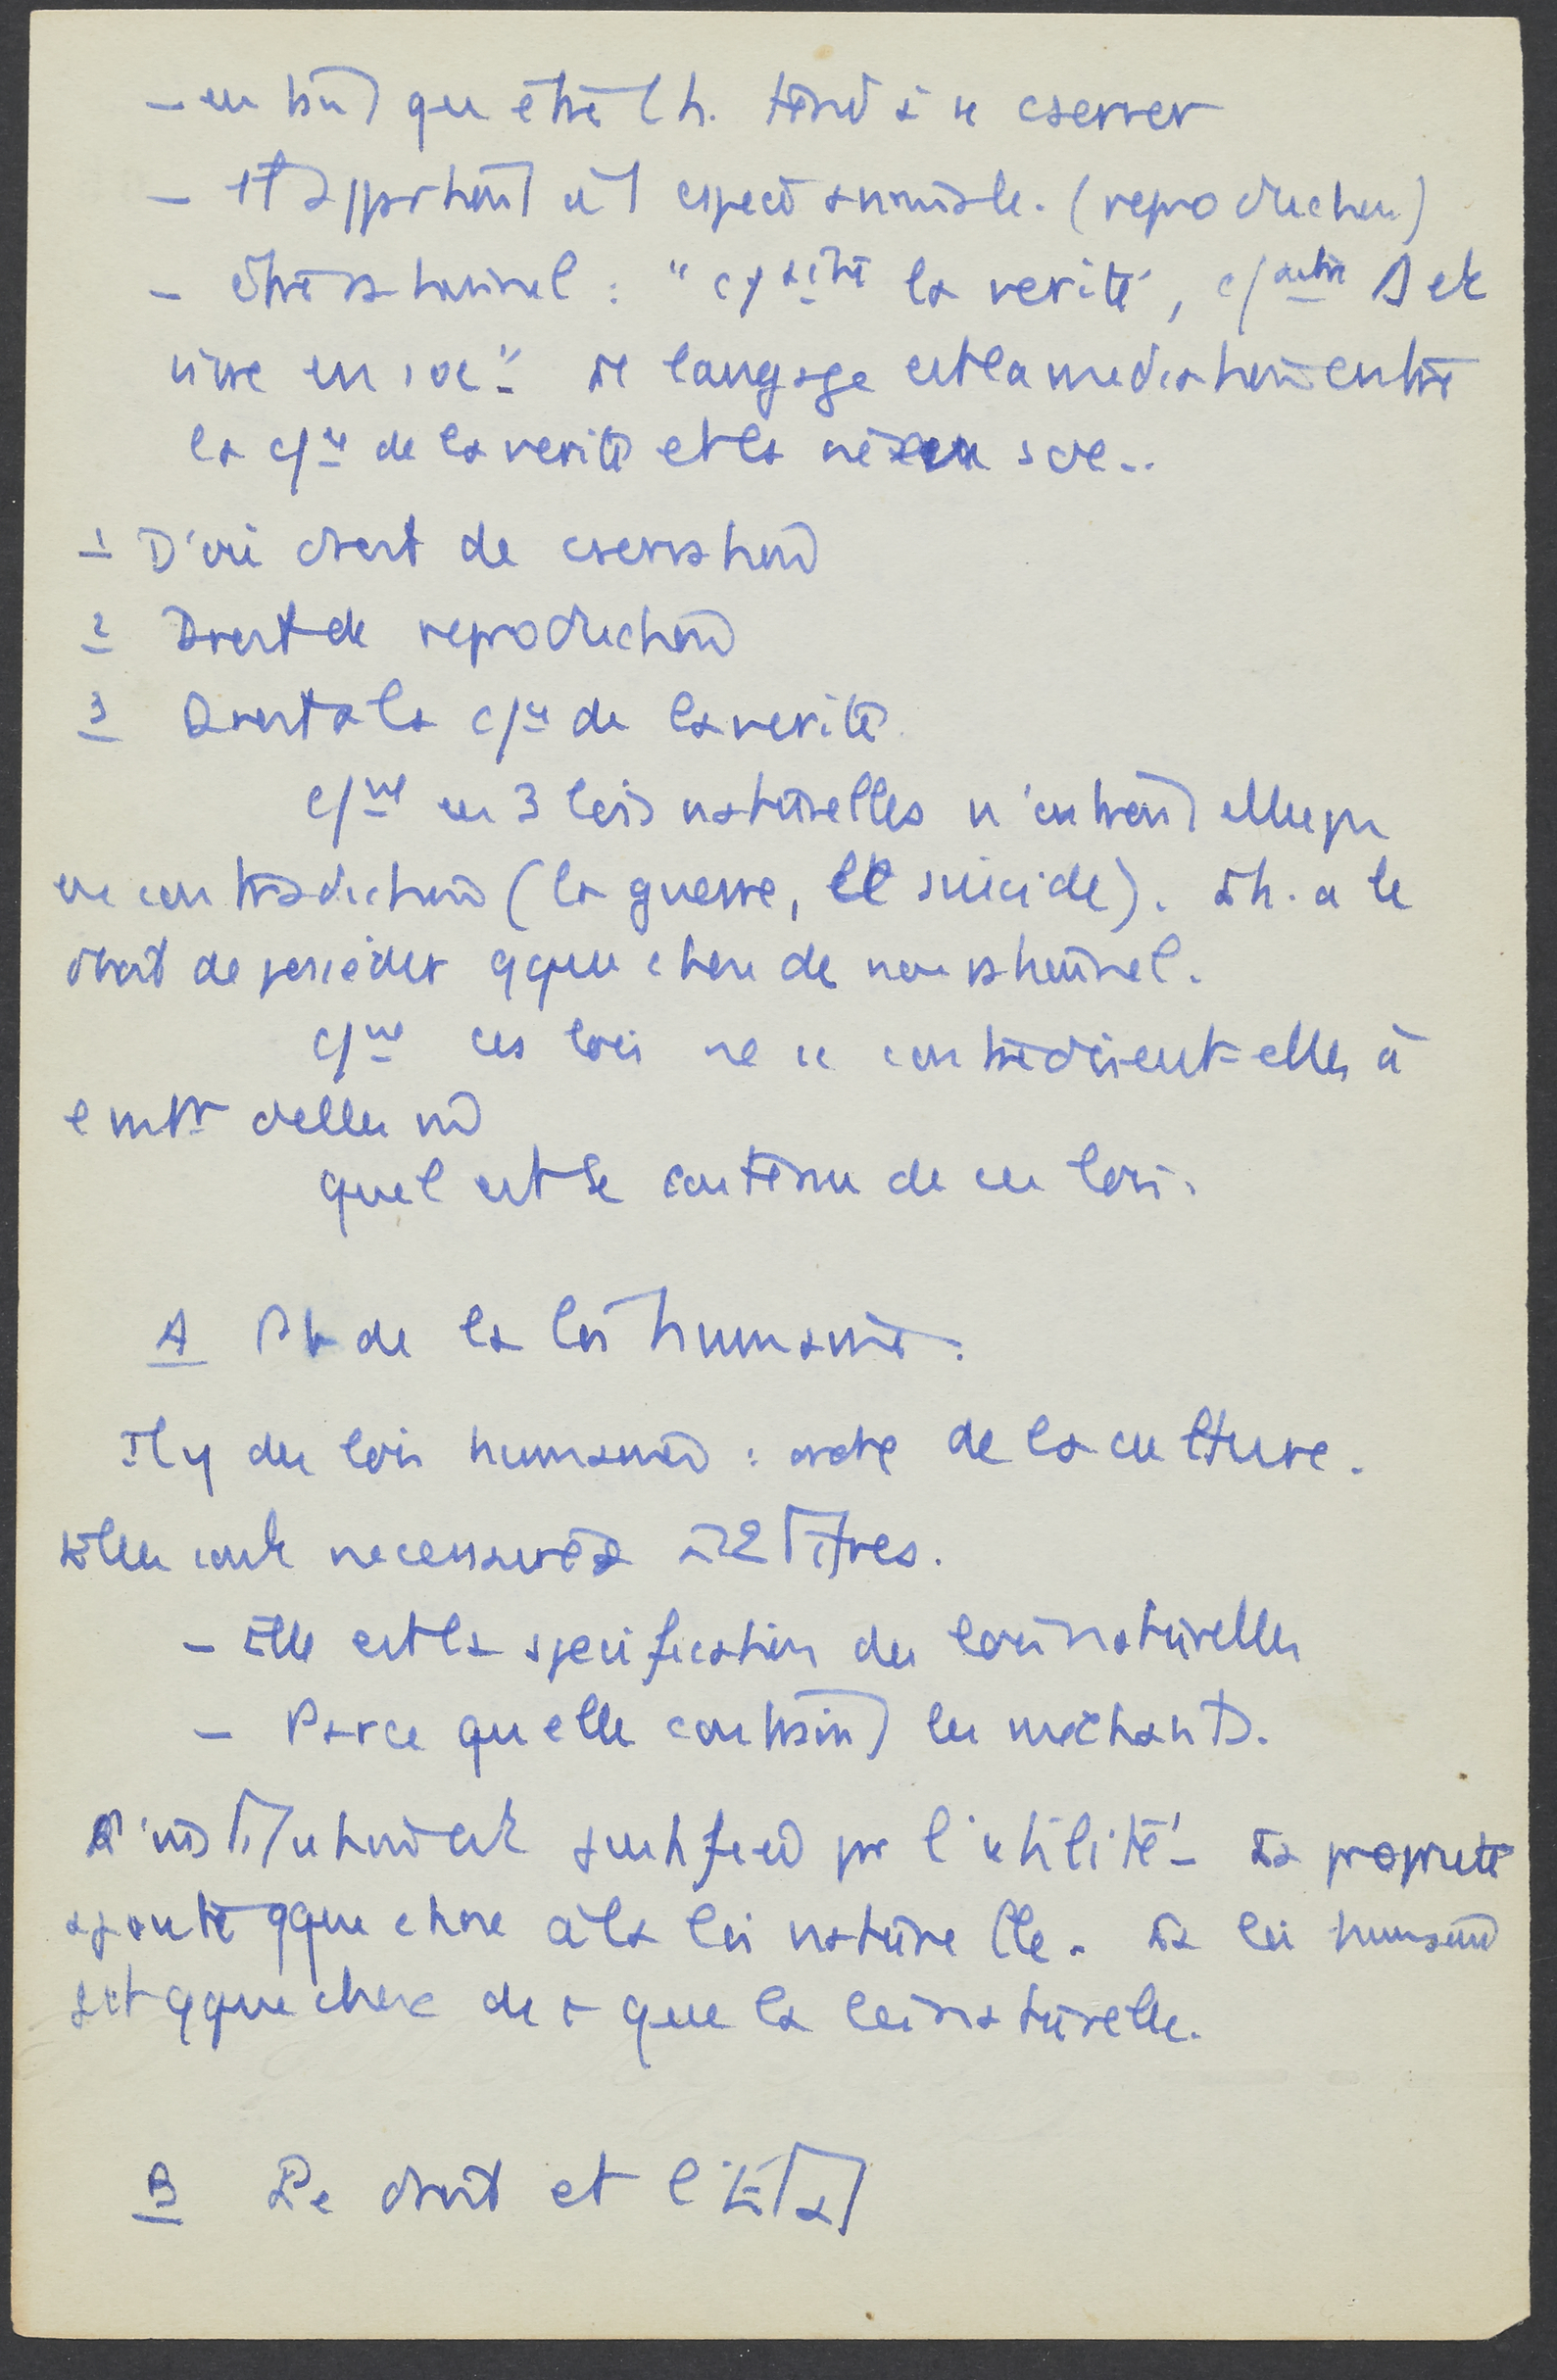 - en tant que être l'h. tend à se cserver
- Il appartient à l'espèce animale. (reproduction)
- être rationnel : " c/aitre la verité,
vivre en soc". Le langage est la mediation entre
la c/ce de la verité et la vie en soc..
1 D'où droit de cservation
2 Droit de reproduction
3 Droit à la c/ce de la verité.
c/ment ces 3 lois naturelles n'entrent elles pas
en contradiction (la guerre, le suicide). L'h. a le
droit de posséder qque chose de non rationnel.
c/ment ces lois ne se contredisent-elles à
quel est le contenu de ces lois.
A Pb de la loi humaine.
Il y des lois humaines : ordre de la culture.
Elles sont necessaires à 2 titres.
- Elle est la specification des lois naturelles
- Parce qu elle contraint les méchants.
L'institution est justifiée par l'utilité - La propriété
ajoute qque chose à la loi naturelle. La loi humaine
est qque chose de + que la loi naturelle.
B Le droit et l'État